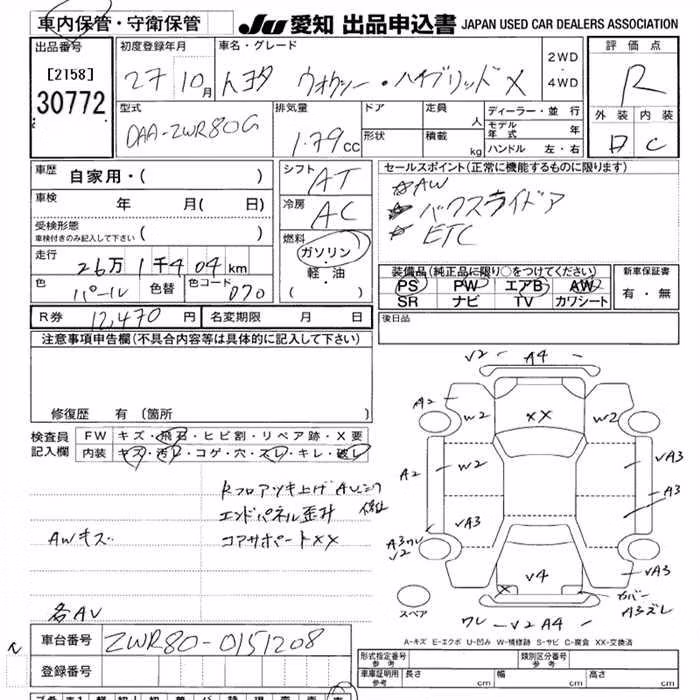 車内保管・守衛保管
JU 愛知 出品申込書 JAPAN USED CAR DEALERS ASSOCIATION
出品番号
[2158]
30772
初度登録年月
27 10月
車名・グレード
トヨタ ヴォクシー・ハイブリッド X
2WD
・
4WD
評価点
R
外装 内装
D C
型式
DAA-ZWR80G
排気量
1.79cc
ドア
形状
定員
人
積載
kg
ディーラー・並行
モデル年式 年
ハンドル 左・右
車歴 自家用・( )
車検 年 月( 日)
受検形態
車検付きのみ記入して下さい ( )
走行
26万1千404km
色 パール 色替 色コード 070
シフト AT
冷房 AC
燃料
ガソリン
・
軽・油
( )
セールスポイント(正常に機能するものに限ります)
☆AW
☆ パワスライドア
☆ ETC
装備品(純正品に限り○をつけてください)
PS PW エアB AW
SR ナビ TV カワシート
新車保証書
有・無
R券 12,470円 名変期限 月 日
後日品
注意事項申告欄(不具合内容等は具体的に記入して下さい)
修復歴 有(箇所
検査員
記入欄
FW キズ・飛石・ヒビ割・リペア跡・X要
内装 キズ・汚レ・コゲ・穴・スレ・キレ・破レ
Rフロアツキ上げAUニワ
エンドパネル歪み 修正
AWキズ コアサポートXX
各AU
V2 A4
A2 W2 XX W2
A2 W2 VA3
A3
VA3 VA3
A3ワレ
V2
V4 VA3
カバー
A3ズレ
スペア
ワレ V2 A4
A-キズ E-エクボ U-凹み W-補修跡 S-サビ C-腐食 XX-交換済
車台番号 ZWR80-0151208
登録番号
形式指定番号
参考
類別区分番号
参考
車庫証明用
参考
長さ cm 幅 cm 高さ cm